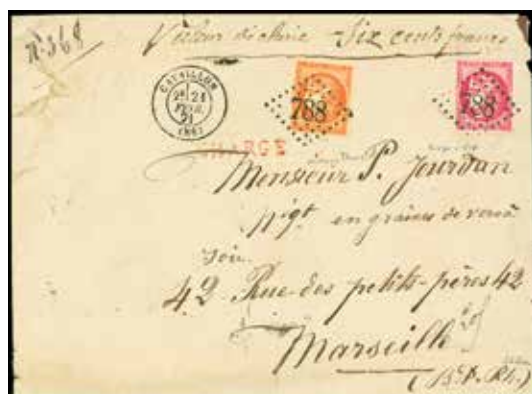 N° 368
Valeur déclarée Six cents francs
CAVAILLON
2E 21
FEVR.
71
(86)
788
788
CHARGE
Monsieur P. Jourdan
Nigt en graines de vers à
soie
42 Rue des petits-pères 42
Marseille
(B. d. Rh.)